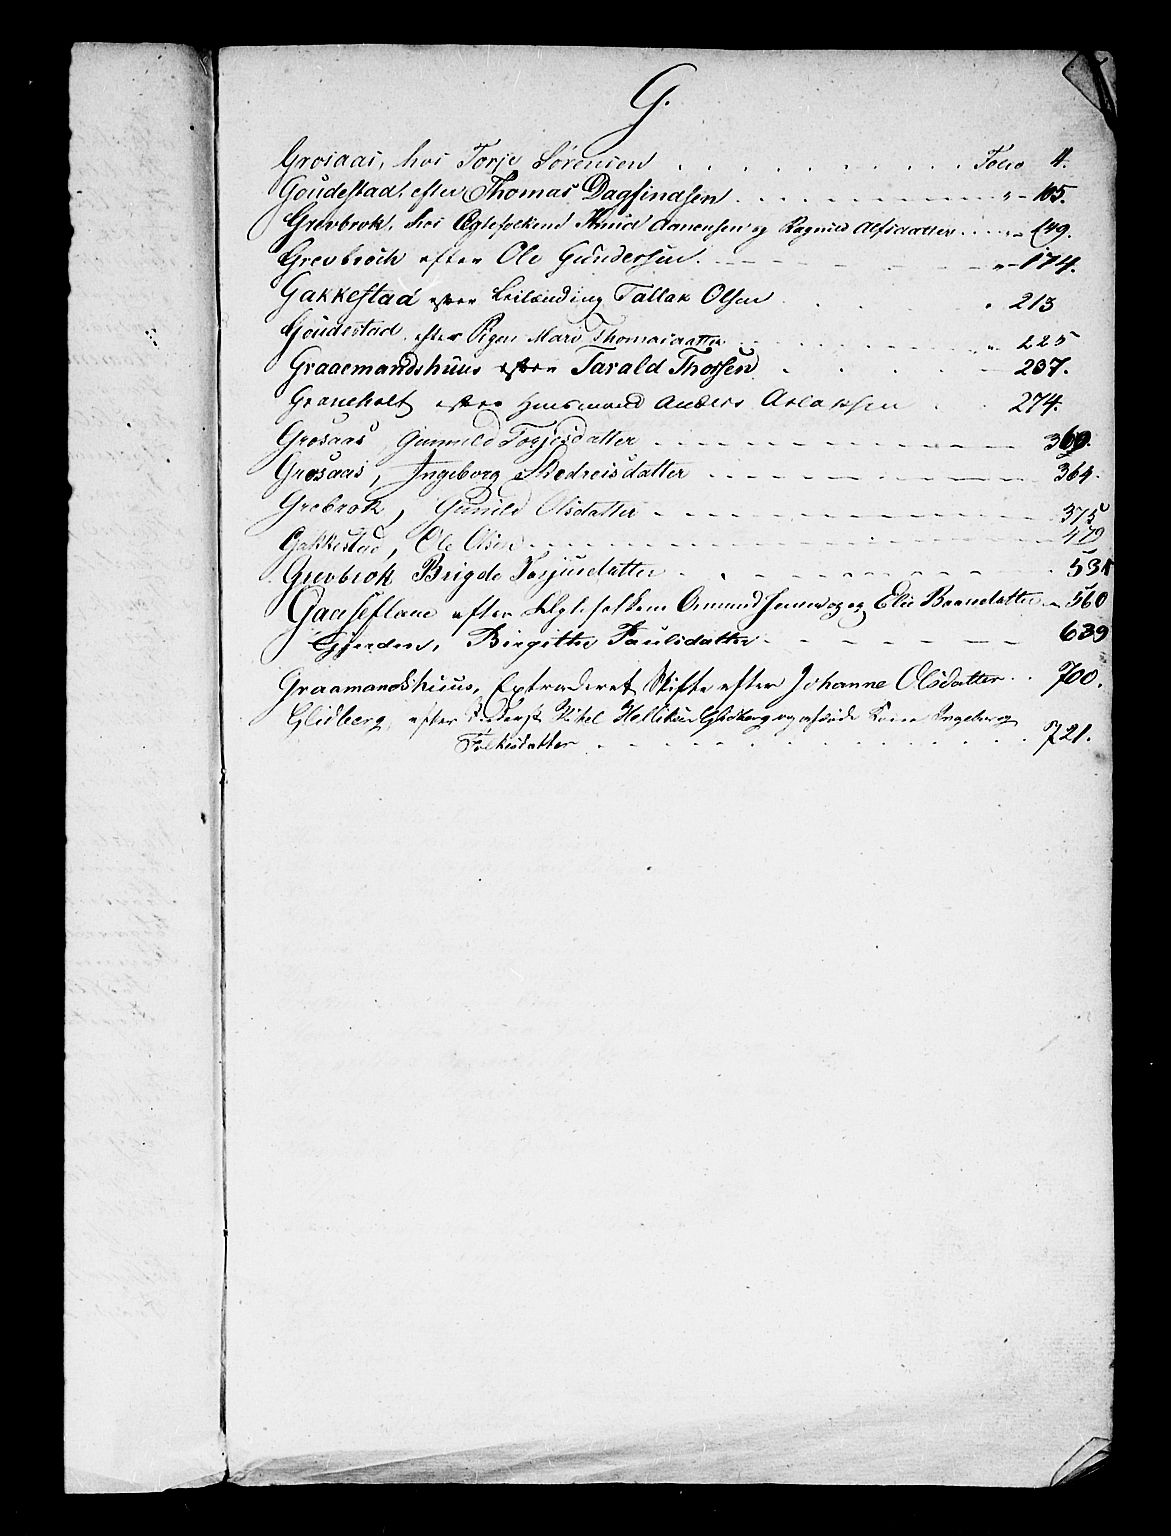 G.
Grosaas, hos Torje Sörensen . . . . . . . . Folio 4.
Goudestad, efter Thomas Dagfindsen . . . . . " - 105.
Grevbrok, hos Ægtefolkene Knud Aanensen og Ragnild Alfsdatter . . . " - 149.
Grevbroch efter Ole Gundersen. - - - - - " - 174.
Gakkestad efter Leilænding Tallak Olsen . . . . " 213
Goudestad efter Pigen Mari Thomasdatter - - - " - 225
Graaemandshuus efter Tarald Thorsen . . . . - 237.
Graneholt efter Huusmand Anders Aslaksen . . 274.
Grosaas Gunnild Torjesdatter - - - - - - - 360.
Grosaas, Ingeborg Sredreisdatter - - - - - - 364.
Grebrok, Gunild Olsdatter - - - - - - - 375
Gakkestad, Ole Olsen - - - - - - - - 479
Grevbrok Brigde Torjusdatter . - - - - - 534
Gaaseflane efter Ægtefolkene Omund Jensen og Elie Baanedatter - 560
Gjerden, Birgitte Paulsdatter - - - - - - 639
Graamandshuus, Extraderet Skifte efter Johanne Olsdatter . . 700.
Glidberg, efter Kittel Glidberg og Kone Ingeborg
Folkesdatter . . . . . . . . . 721.